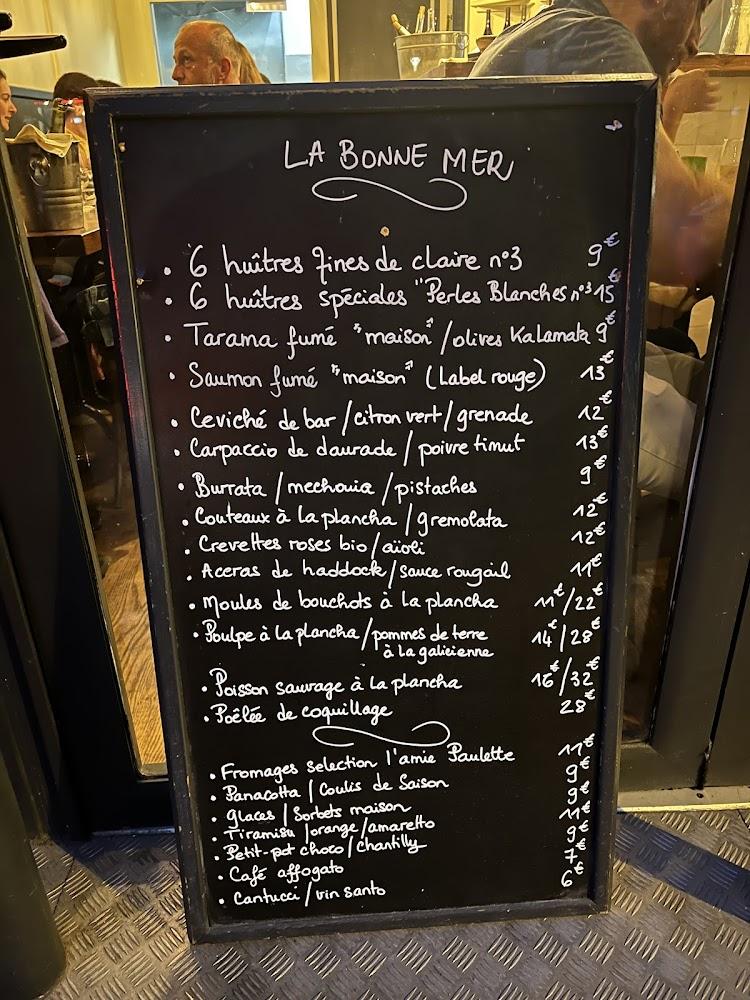 LA BONNE MER
• 6 huîtres fines de claire n°3 9€
• 6 huîtres spéciales "Perles Blanches n°3 15€
• Tarama fumé "maison" /olives Kalamata 9€
• Saumon fumé "maison" (Label rouge) 13€
• Ceviché de bar / citron vert / grenade 12€
• Carpaccio de daurade / poivre timut 13€
• Burrata / mechouia / pistaches 9€
• Couteaux à la plancha / gremolata 12€
• Crevettes roses bio / aïoli 12€
• Aceras de haddock / sauce rougail 11€
• Moules de bouchots à la plancha 11€/22€
• Poulpe à la plancha / pommes de terre 14€/28€
à la galicienne
• Poisson sauvage à la plancha 16€/32€
• Poêlée de coquillage 28€
• Fromages selection l'amie Paulette 11€
• Panacotta / Coulis de Saison 9€
• glaces / Sorbets maison 9€
• Tiramisu / orange / amaretto 11€
• Petit-pot choco / chantilly 9€
• Café affogato 7€
• Cantucci / vin santo 6€